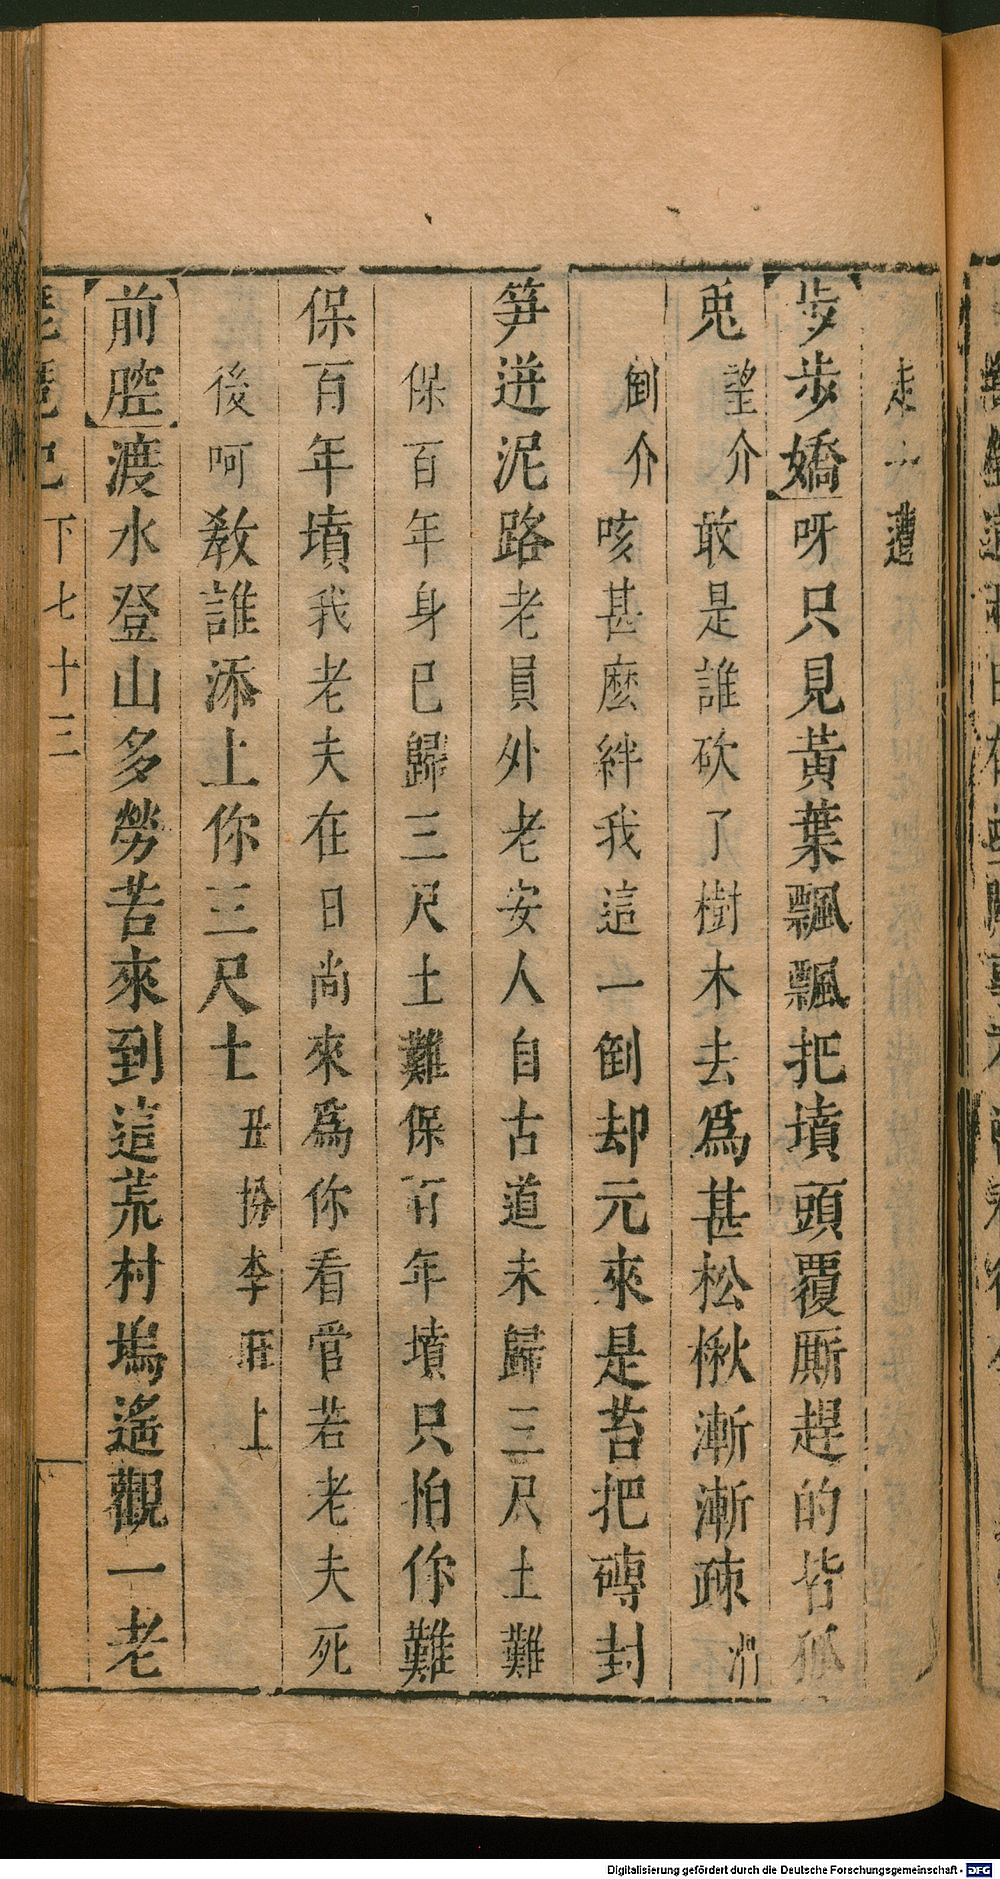 走一遭
步步嬌呀只見黃葉飄飄把墳頭覆厮趕的皆狐
兎望介敢是誰砍了樹木去爲甚松楸漸漸疎滑
倒介咳甚麼絆我這一倒却元來是苔把磚封
笋迸泥路老員外老安人自古道未歸三尺土難
保百年身已歸三尺土難保百年墳只怕你難
保百年墳我老夫在日尚來爲你看管若老夫死
後呵敎誰添上你三尺土丑扮李旺上
前腔渡水登山多勞苦來到這荒村塢遙觀一老
琵琶記 下七十三
Digitalisierung gefördert durch die Deutsche Forschungsgemeinschaft - DFG